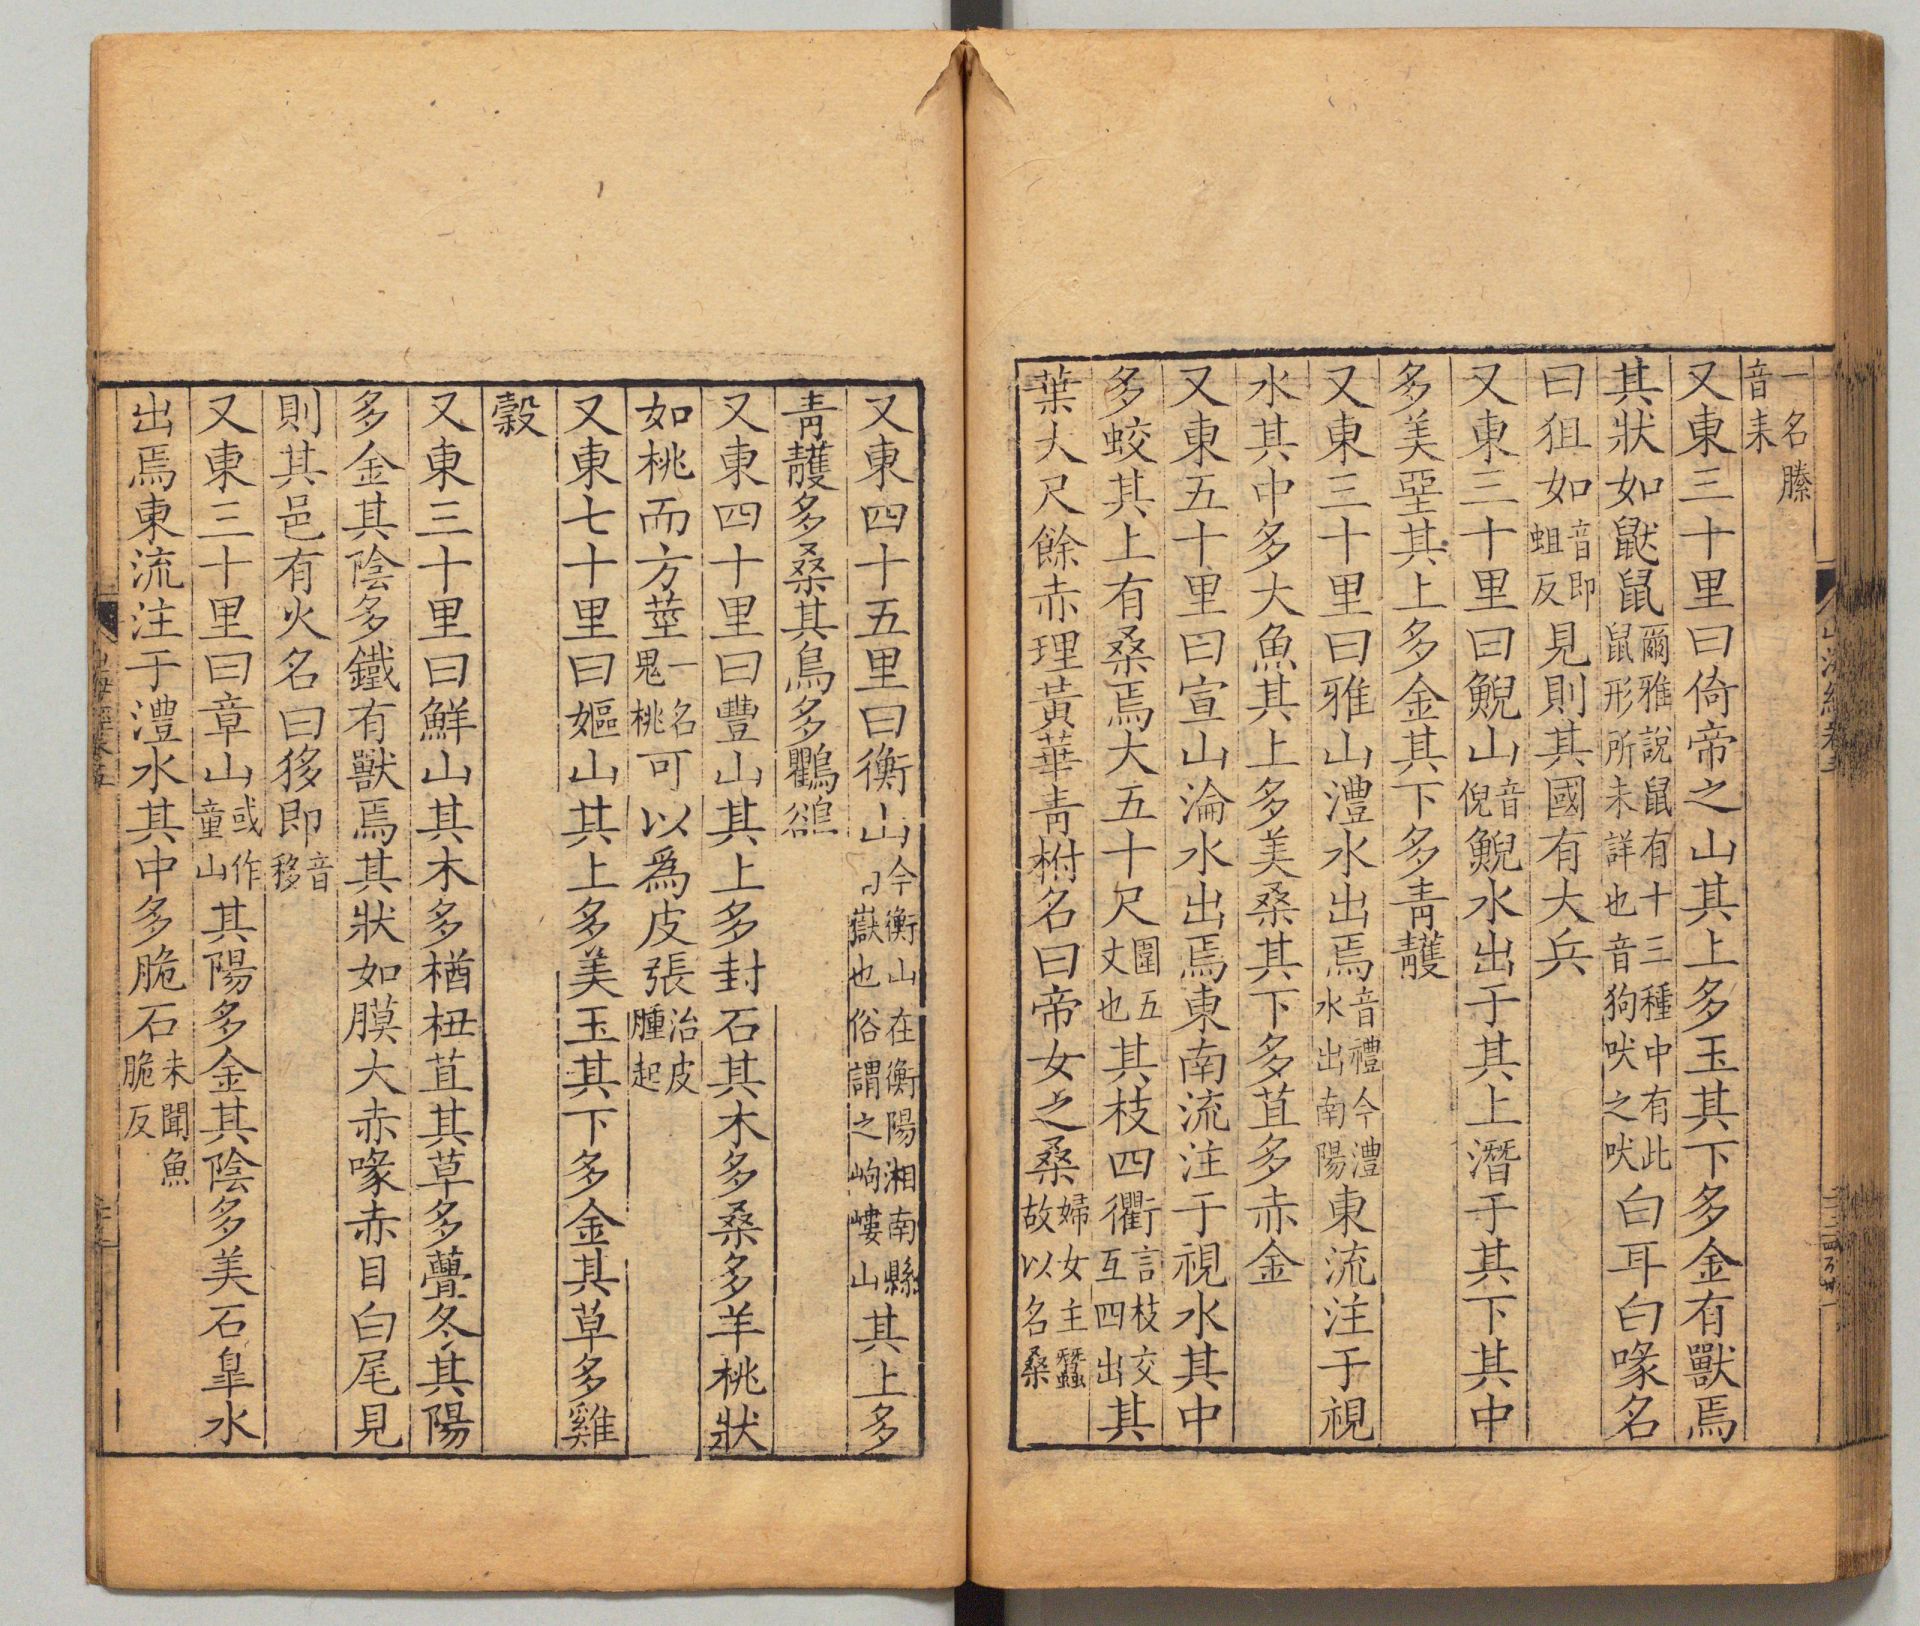 一名縢音耒
又東三十里曰倚帝之山其上多玉其下多金有獸焉
其狀如鼣鼠爾雅說鼠有十三種中有此鼠形所未詳也音狗吠之吠白耳白喙名
曰狙如音即蛆反見則其國有大兵
又東三十里曰鯢山音倪鯢水出于其上潛于其下其中
多美堊其上多金其下多青雘
又東三十里曰雅山澧水出焉音禮今澧水出南陽東流注于視
水其中多大魚其上多美桑其下多苴多赤金
又東五十里曰宣山淪水出焉東南流注于視水其中
多蛟其上有桑焉大五十尺圍五丈也其枝四衢言枝交互四出其
葉大尺餘赤理黃華青柎名曰帝女之桑婦女主蠶故以名桑
又東四十五里曰衡山今衡山在衡陽湘南縣嶽也俗謂之岣嶁山其上多
青雘多桑其鳥多鸜鵒
又東四十里曰豐山其上多封石其木多桑多羊桃狀
如桃而方莖一名鬼桃可以爲皮張治皮腫起
又東七十里曰嫗山其上多美玉其下多金其草多雞
穀
又東三十里曰鮮山其木多楢杻苴其草多虋冬其陽
多金其陰多鐵有獸焉其狀如膜大赤喙赤目白尾見
則其邑有火名曰𤝻即音移
又東三十里曰章山或作童山其陽多金其陰多美石皐水
出焉東流注于澧水其中多脆石未聞魚脆反